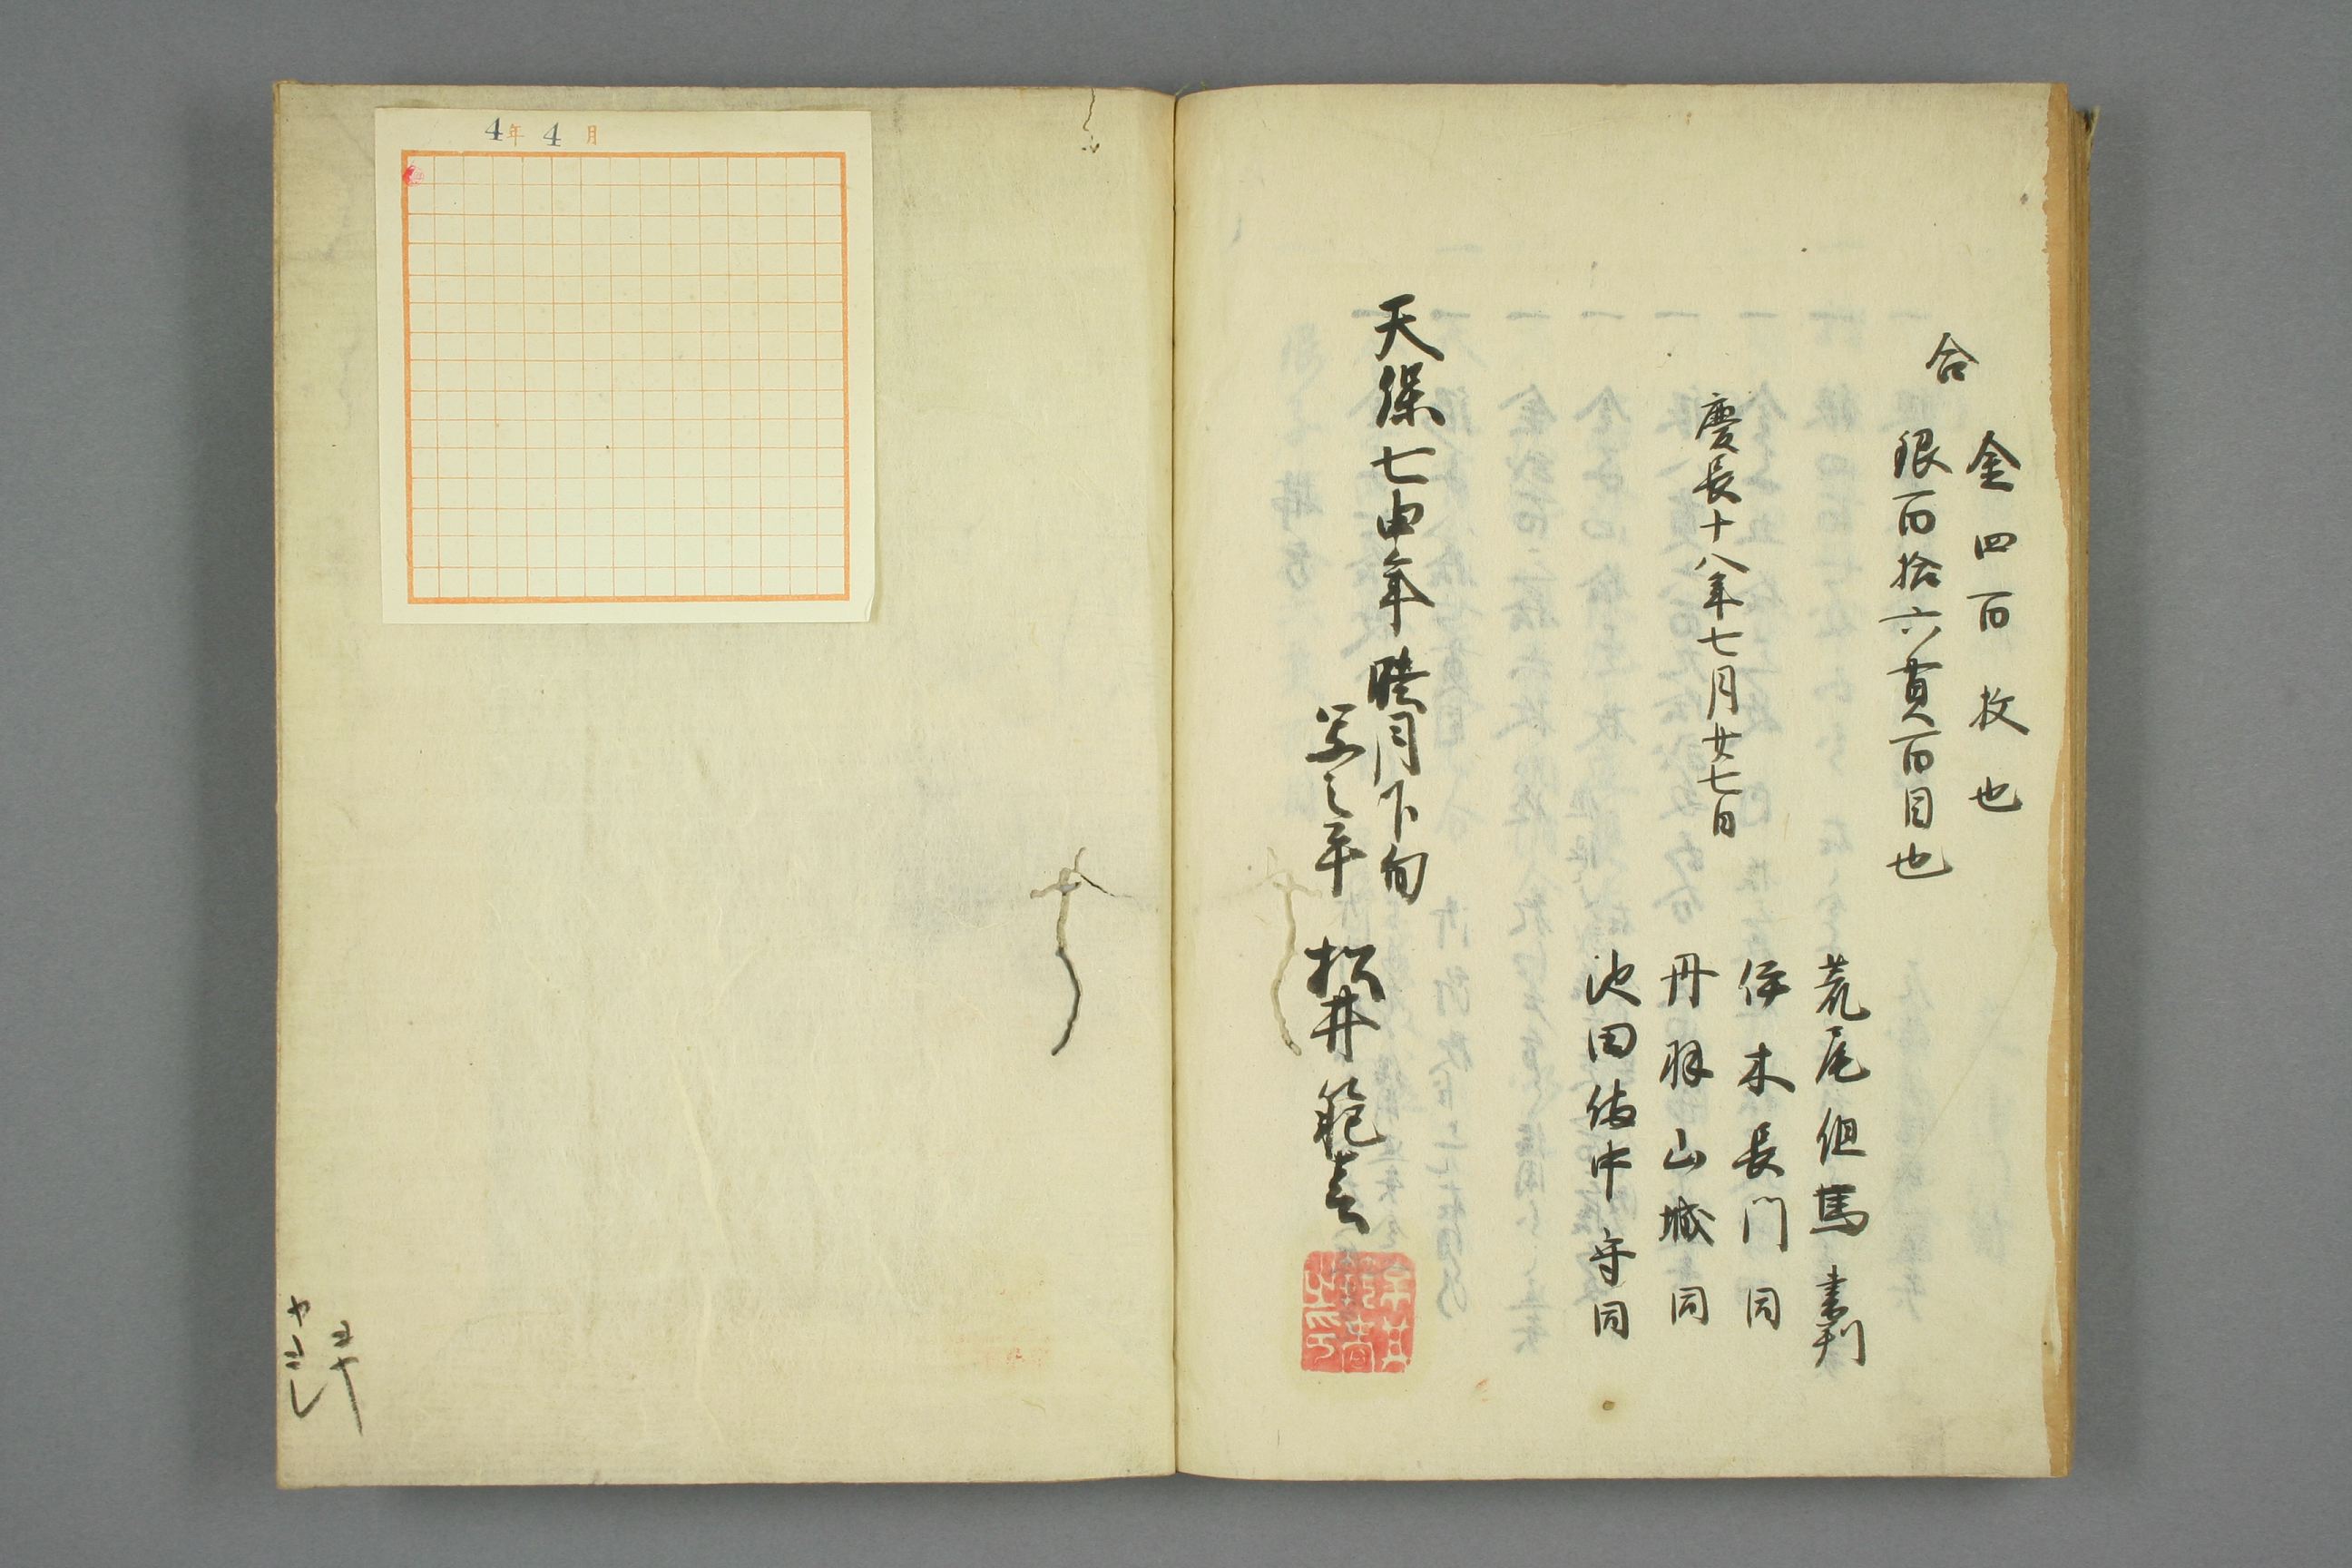 合
金四百枚也
銀百拾六貫百目也
慶長十八年七月廿七日
荒尾但馬書判
伊木長門同
丹羽山城同
池田備中守同
天保七申年睦月下旬
写之平
松井範春
4年4月